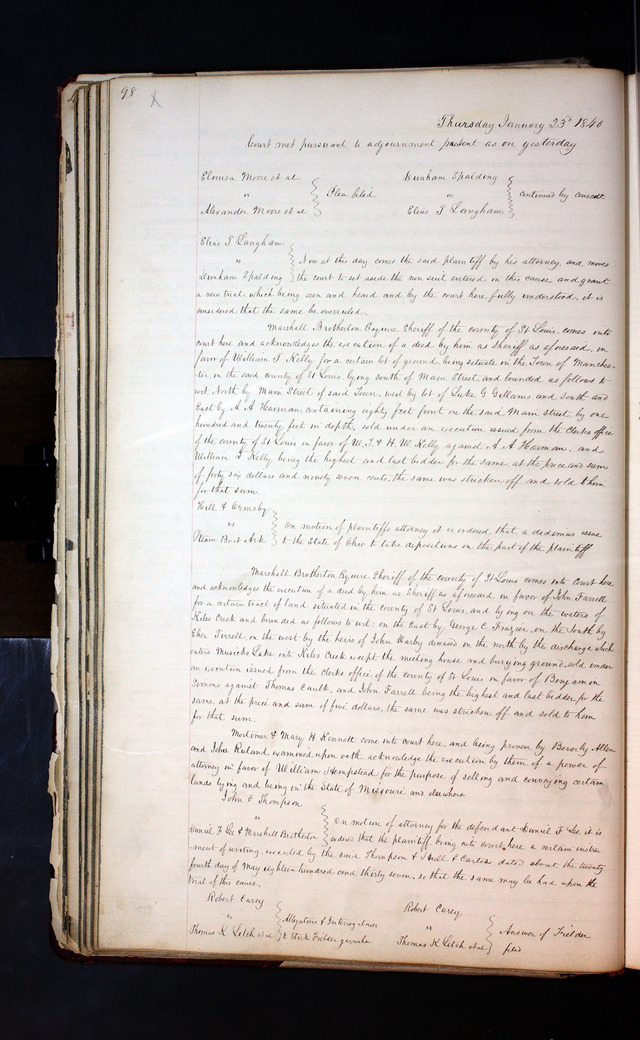 98
Thursday January 23d 1840
Court met pursuant to adjournment present as on yesterday
Elouisa Moore et al
vs
Alexander Moore et al
Plea filed
Dunham Spalding
vs
Elias T Langham
continued by consent
Elias T Langham
vs
Dunham Spalding
Now at this day comes the said plaintiff by his attorney, and moves
the court to set aside the non suit entered on this cause and grant
a new trial, which being seen and heard and by the court here fully understood, it is
considered that the same be overruled.
Marshall Brotherton Esquire Sheriff of the county of St Louis, comes into
court here and acknowledges the execution of a deed by him as sheriff as aforesaid, in
favor of William T Kelly for a certain lot of ground, being situate in the Town of Manches-
ter, in the said county of St Louis, lying south of Main Street and bounded as follows to
wit, North by Main Street of said Town, west by lot of Luke G Gellams and South and
East by A A Harman, containing eighty feet front on the said Main Street, by one
hundred and twenty feet in depth, sold under an execution issued from the Clerks office
of the county of St Louis in favor of W. T. & H. W Kelly against A A Harman, and
William T Kelly being the highest and last bidder for the same, at the price and sum
of forty six dollars and ninety seven cents, the same was stricken off and sold to him
for that sum.
Hill & Ormsby
vs
Steam Boat Ark
On motion of plaintiffs attorney it is ordered, that a dedimus issue
to the State of Ohio to take depositions on the part of the plaintiff
Marshall Brotherton Esquire Sheriff of the county of St Louis comes into Court here
and acknowledges the execution of a deed by him as Sheriff as aforesaid, in favor of John Farrell
for a certain tract of land situated in the county of St Louis, and lying on the waters of
Kiles Creek and bounded as follows to wit: on the East by George C Frazier, on the South by
Eber Terrell, on the west by the heirs of John Harby deceased on the north by the discharge which
enters Musicks Lake into Kiles Creek except the meeting house and burying ground, sold under
an execution issued from the Clerks office of the county of St Louis in favor of Benjamin
Simons against Thomas Caulk, and John Farrell being the highest and last bidder for the
same, at the price and sum of five dollars, the same was stricken off and sold to him
for that sum.
Mortimer & Mary H Kennett come into court here, and being proven by Beverly Allen
and John Ruland examined upon oath acknowledge the execution by them of a power of
attorney in favor of William Hempstead for the purpose of selling and conveying certain
lands lying and being in the State of Missouri and elsewhere
John C Thompson
vs
Daniel F Lee & Marshall Brotherton
On motion of attorney for the defendant Daniel F Lee it is
ordered that the plaintiff bring into court here a certain instru
ment of writing, executed by the said Thompson & Hull & Carter dated about the twenty
fourth day of May eighteen hundred and thirty seven, so that the same may be had upon the
trial of this cause.
Robert Carey
vs
Thomas K Letch et al
Allegations & Interrogatories
to Stark Fielder garnishee
Robert Carey
vs
Thomas K Letch et al
Answer of Fielder
filed